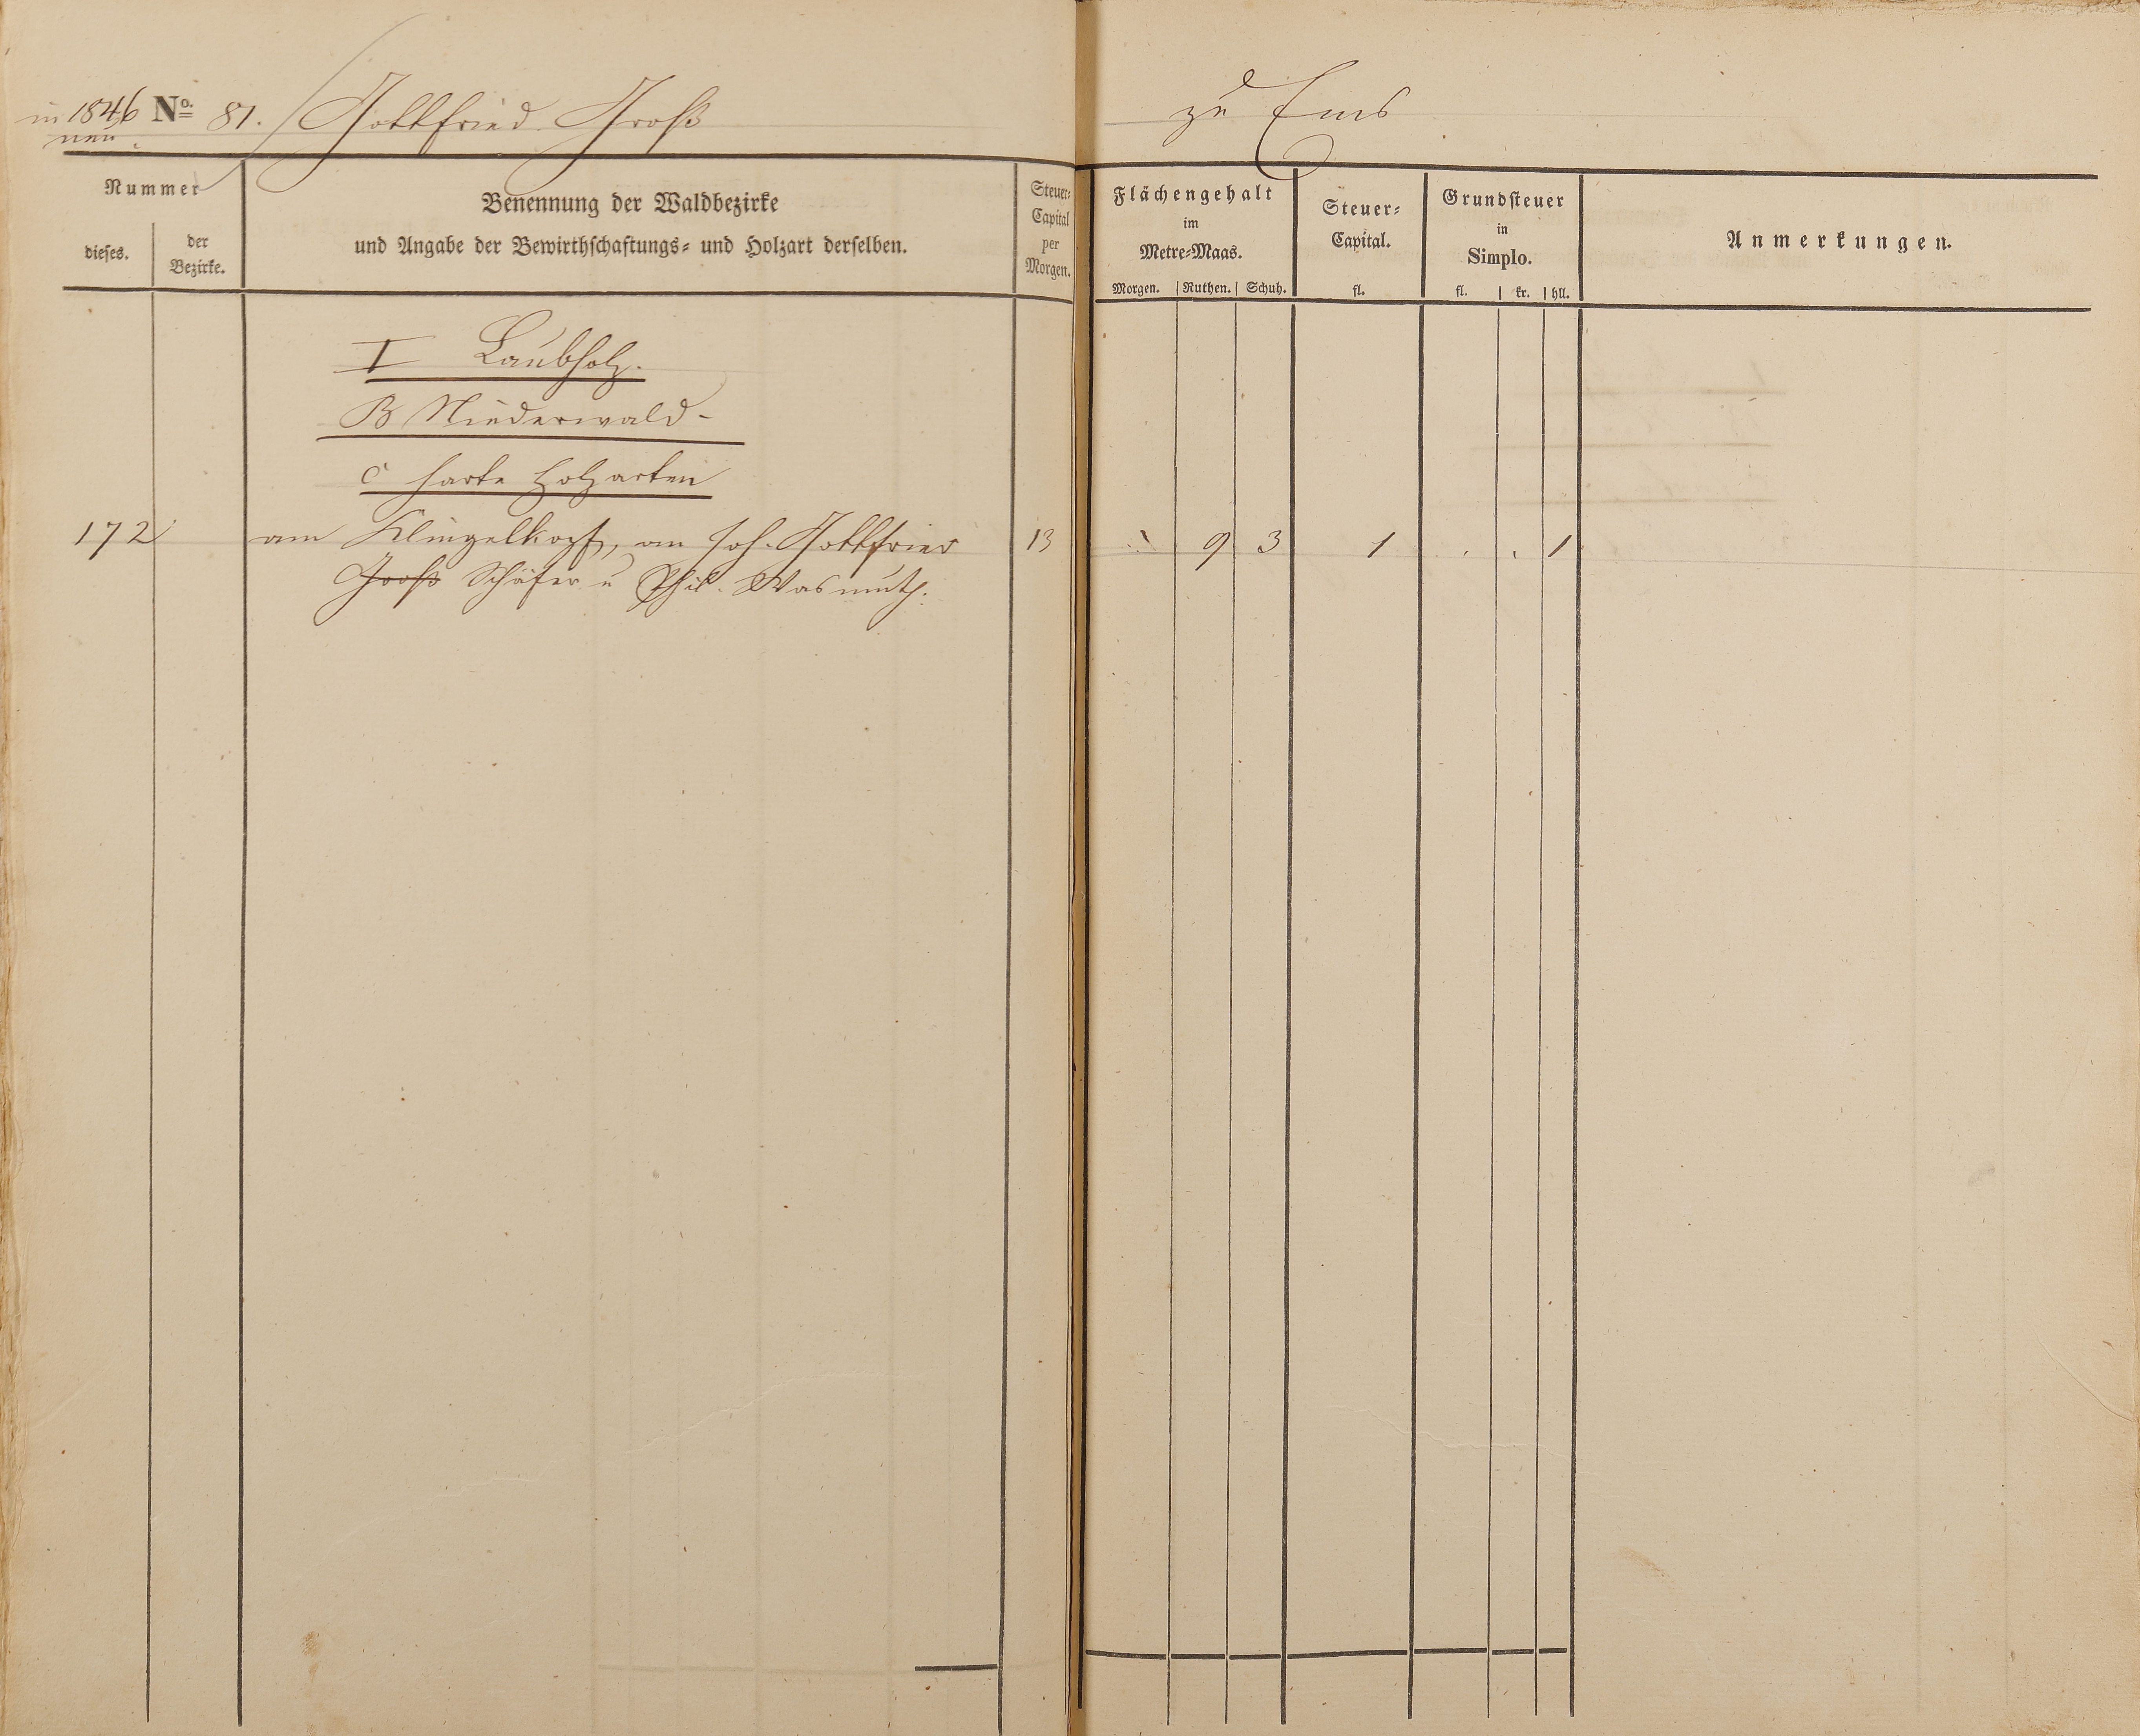 in 1846 No. 81. Gottfried Groß zu Ems
neu.
Nummer
dieses.
der
Bezirke.
Benennung der Waldbezirke
und Angabe der Bewirthschaftungs- und Holzart derselben.
Steuer-
Capital
per
Morgen.
Flächengehalt
im
Metre-Maas.
Morgen. Ruthen. Schuh.
Steuer-
Capital.
fl.
Grundsteuer
in
Simplo.
fl. kr. hll.
Anmerkungen.
I Laubholz.
B Niederwald-
c harte Holzarten
172 am Klingelkopf, an Joh. Gottfried 13 . 9 3 1 . . 1
Groß Schäfer u Phil. Wasmuth.